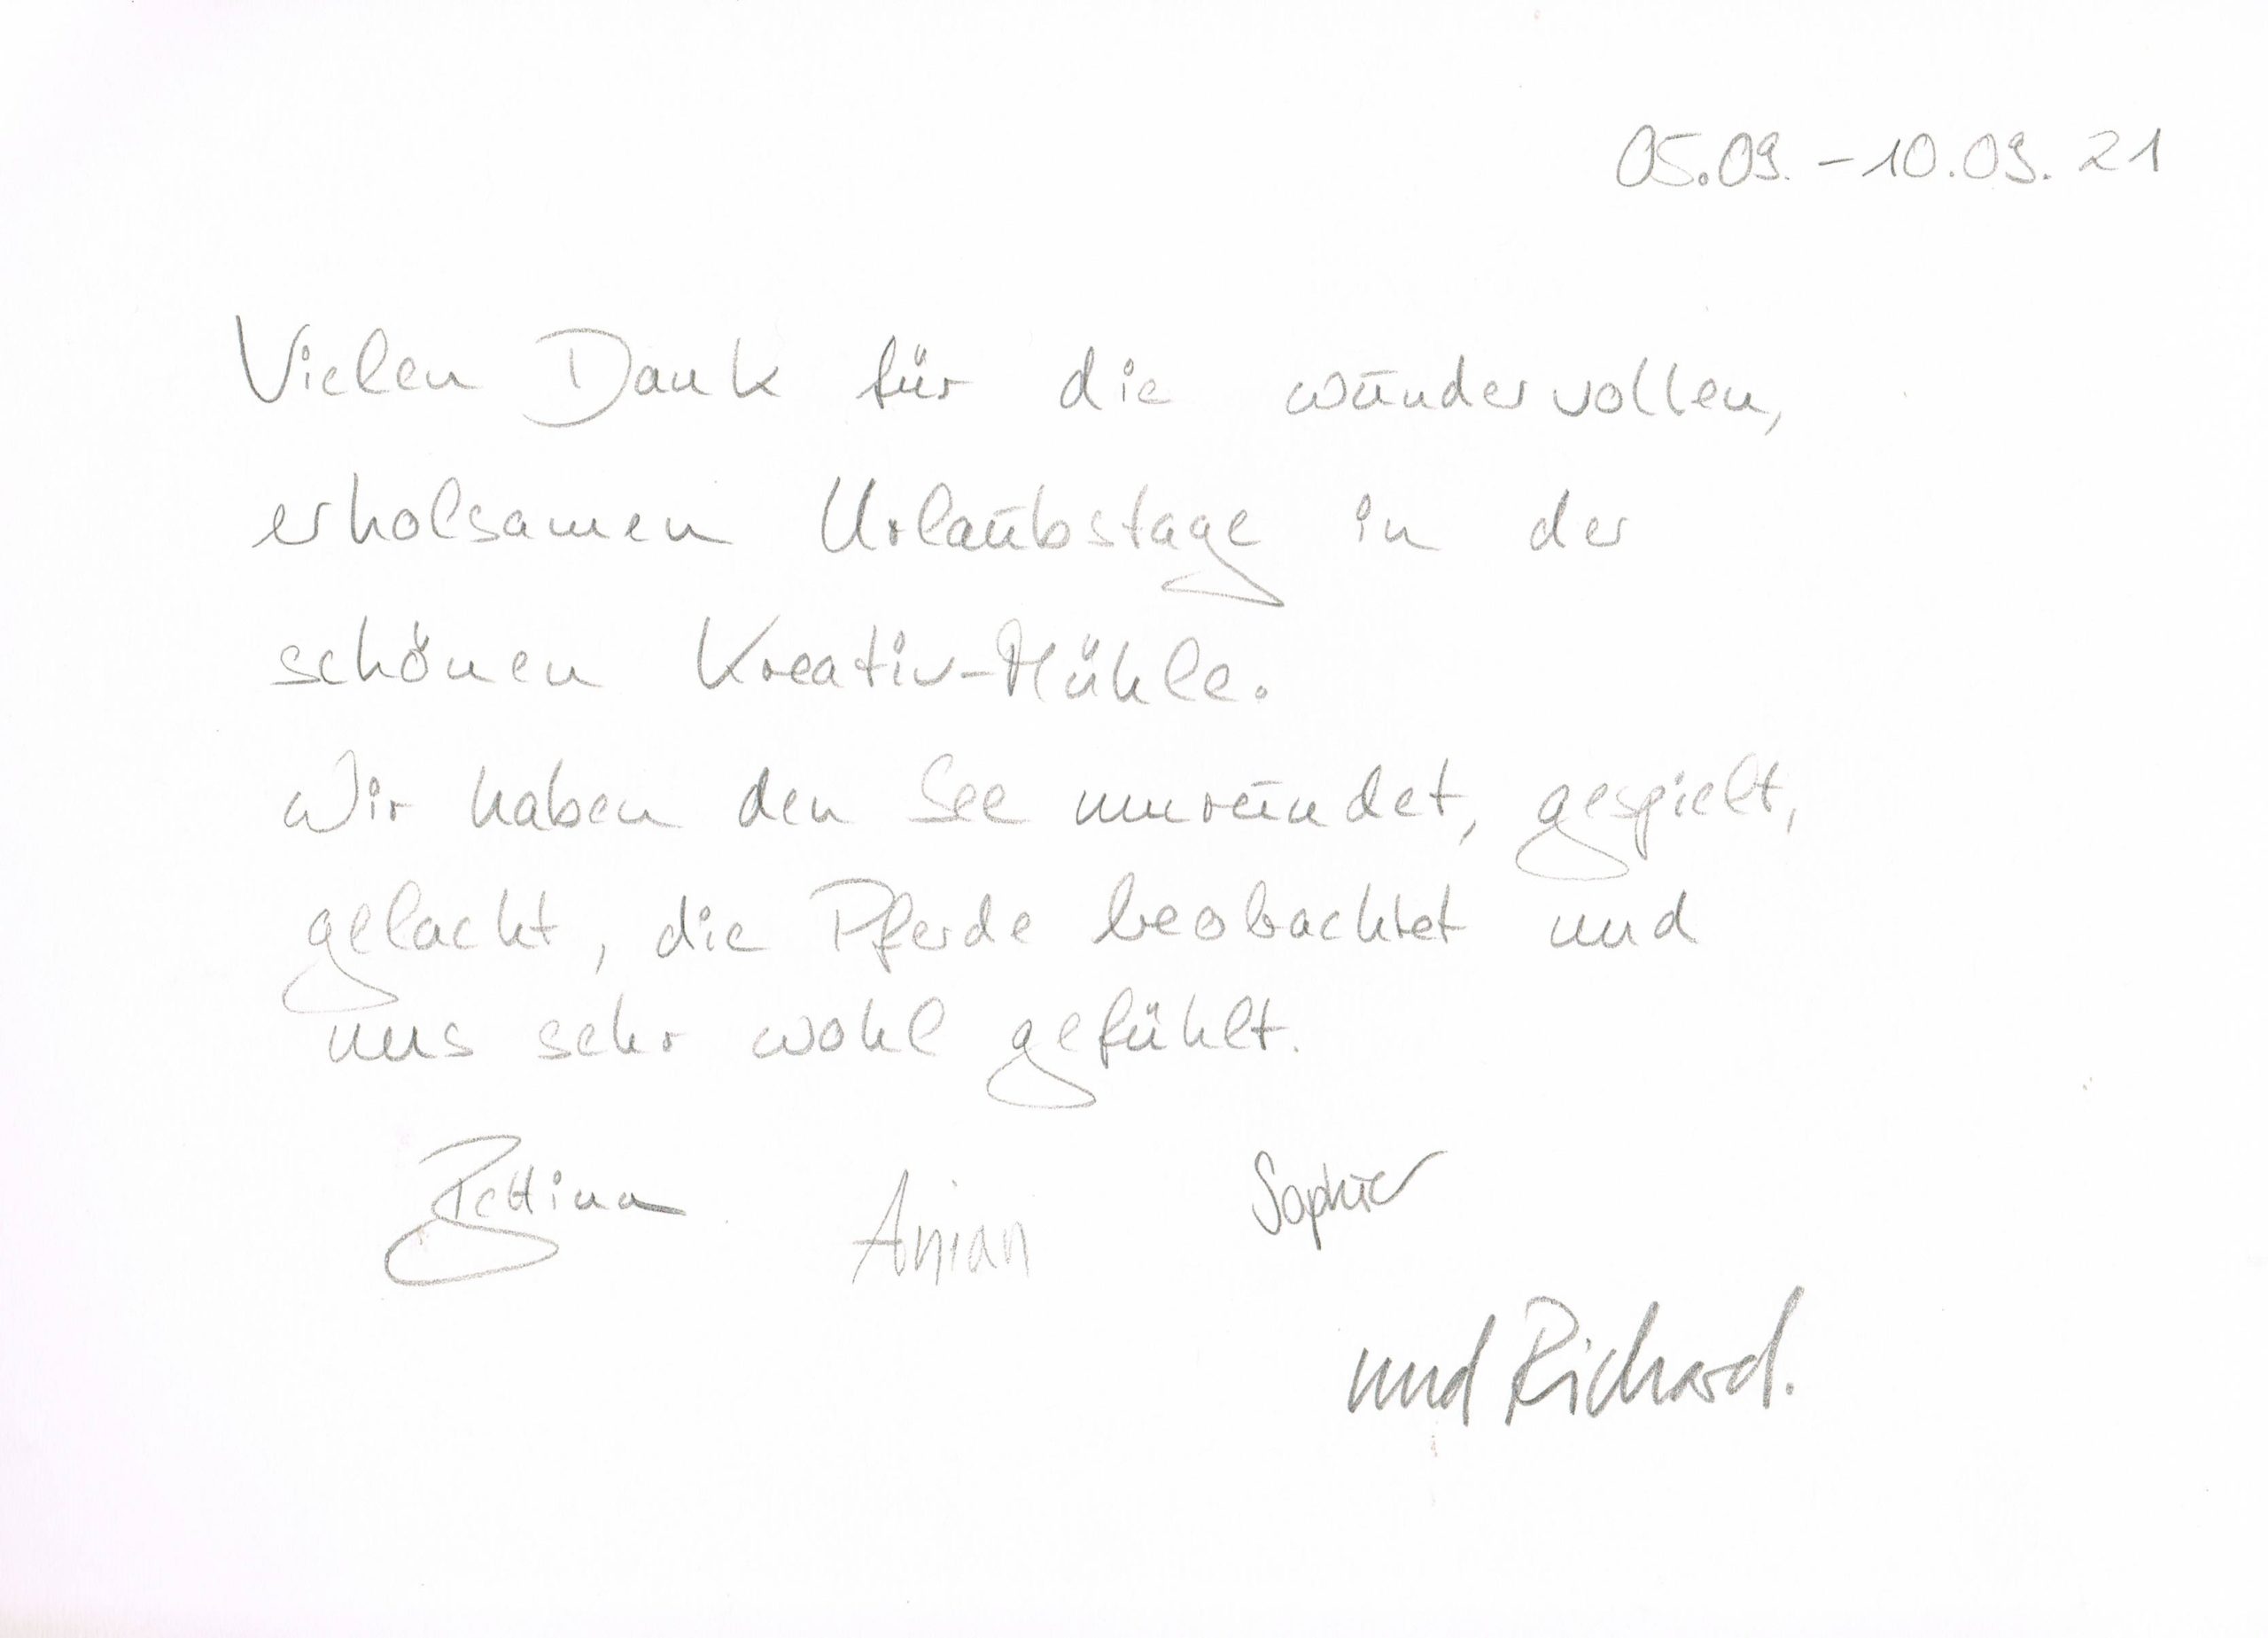 05.09. - 10.09. 21
Vielen Dank für die wundervollen,
erholsamen Urlaubstage in der
schönen Kreativ-Mühle.
Wir haben den See umrundet, gespielt,
gelacht, die Pferde beobachtet und
uns sehr wohl gefühlt.
Bettina Anian Sophie
und Richard.